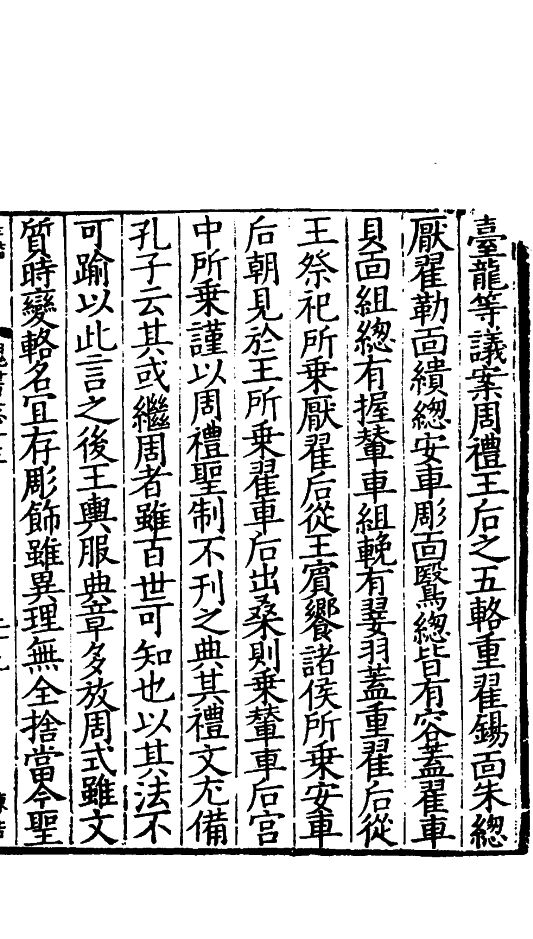 臺龍等議案周禮王后之五輅重翟鍚面朱緫
厭翟勒面繢緫安車彫面鷖緫皆有容蓋翟車
貝面組緫有握輦車組輓有翣羽蓋重翟后從
王祭祀所乗厭翟后從王賔饗諸侯所乗安車
后朝見於王所乗翟車后出桑則乗輦車后宫
中所乗謹以周禮聖制不刋之典其禮文尤備
孔子云其或繼周者雖百世可知也以其法不
可踰以此言之後王輿服典章多放周式雖文
質時變輅名冝存彫飾雖異理無全捨當今聖